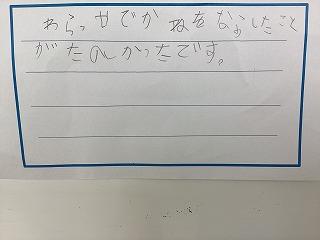 わらっせでかねをならしたこと
がたのしかったです。